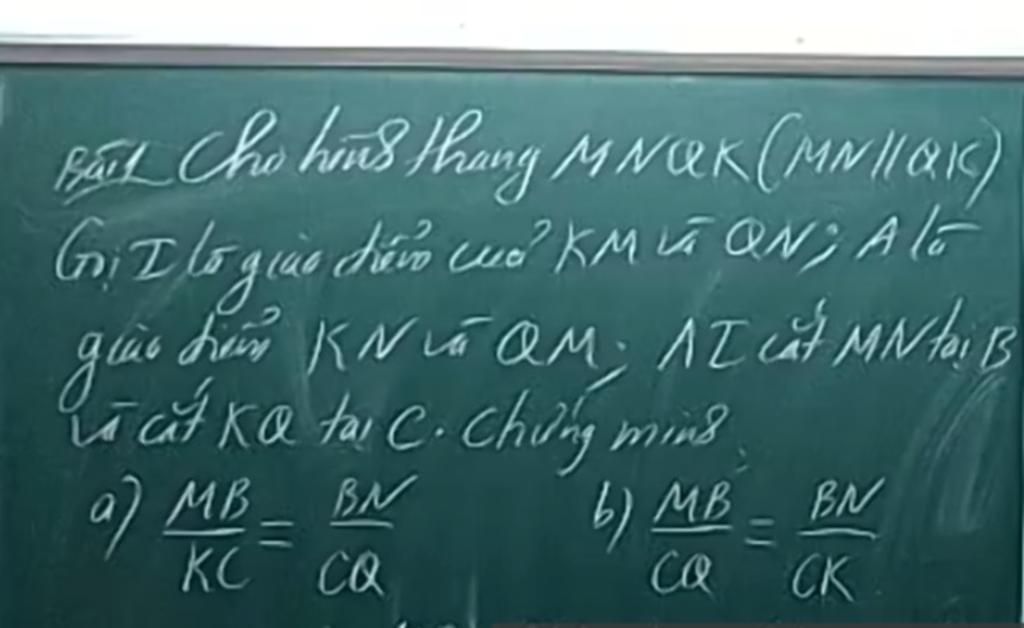 Bài 1 Cho hình thang MNQK (MN//QK)
Gọi I là giao điểm của KM và QN; A là
giao điểm KN và QM; AI cắt MN tại B
và cắt KQ tại C. Chứng minh
a) MB/KC = BN/CQ b) MB/CQ = BN/CK